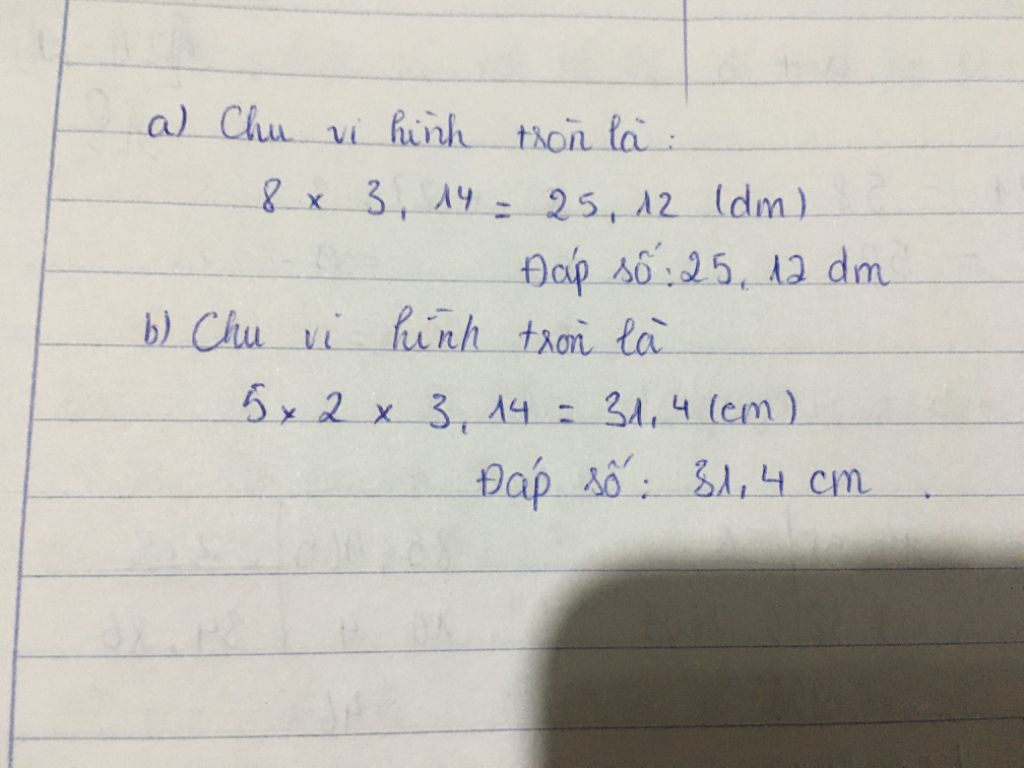 a) Chu vi hình tròn là:
8 x 3,14 = 25,12 (dm)
Đáp số: 25,12 dm
b) Chu vi hình tròn là
5 x 2 x 3,14 = 31,4 (cm)
Đáp số: 31,4 cm.